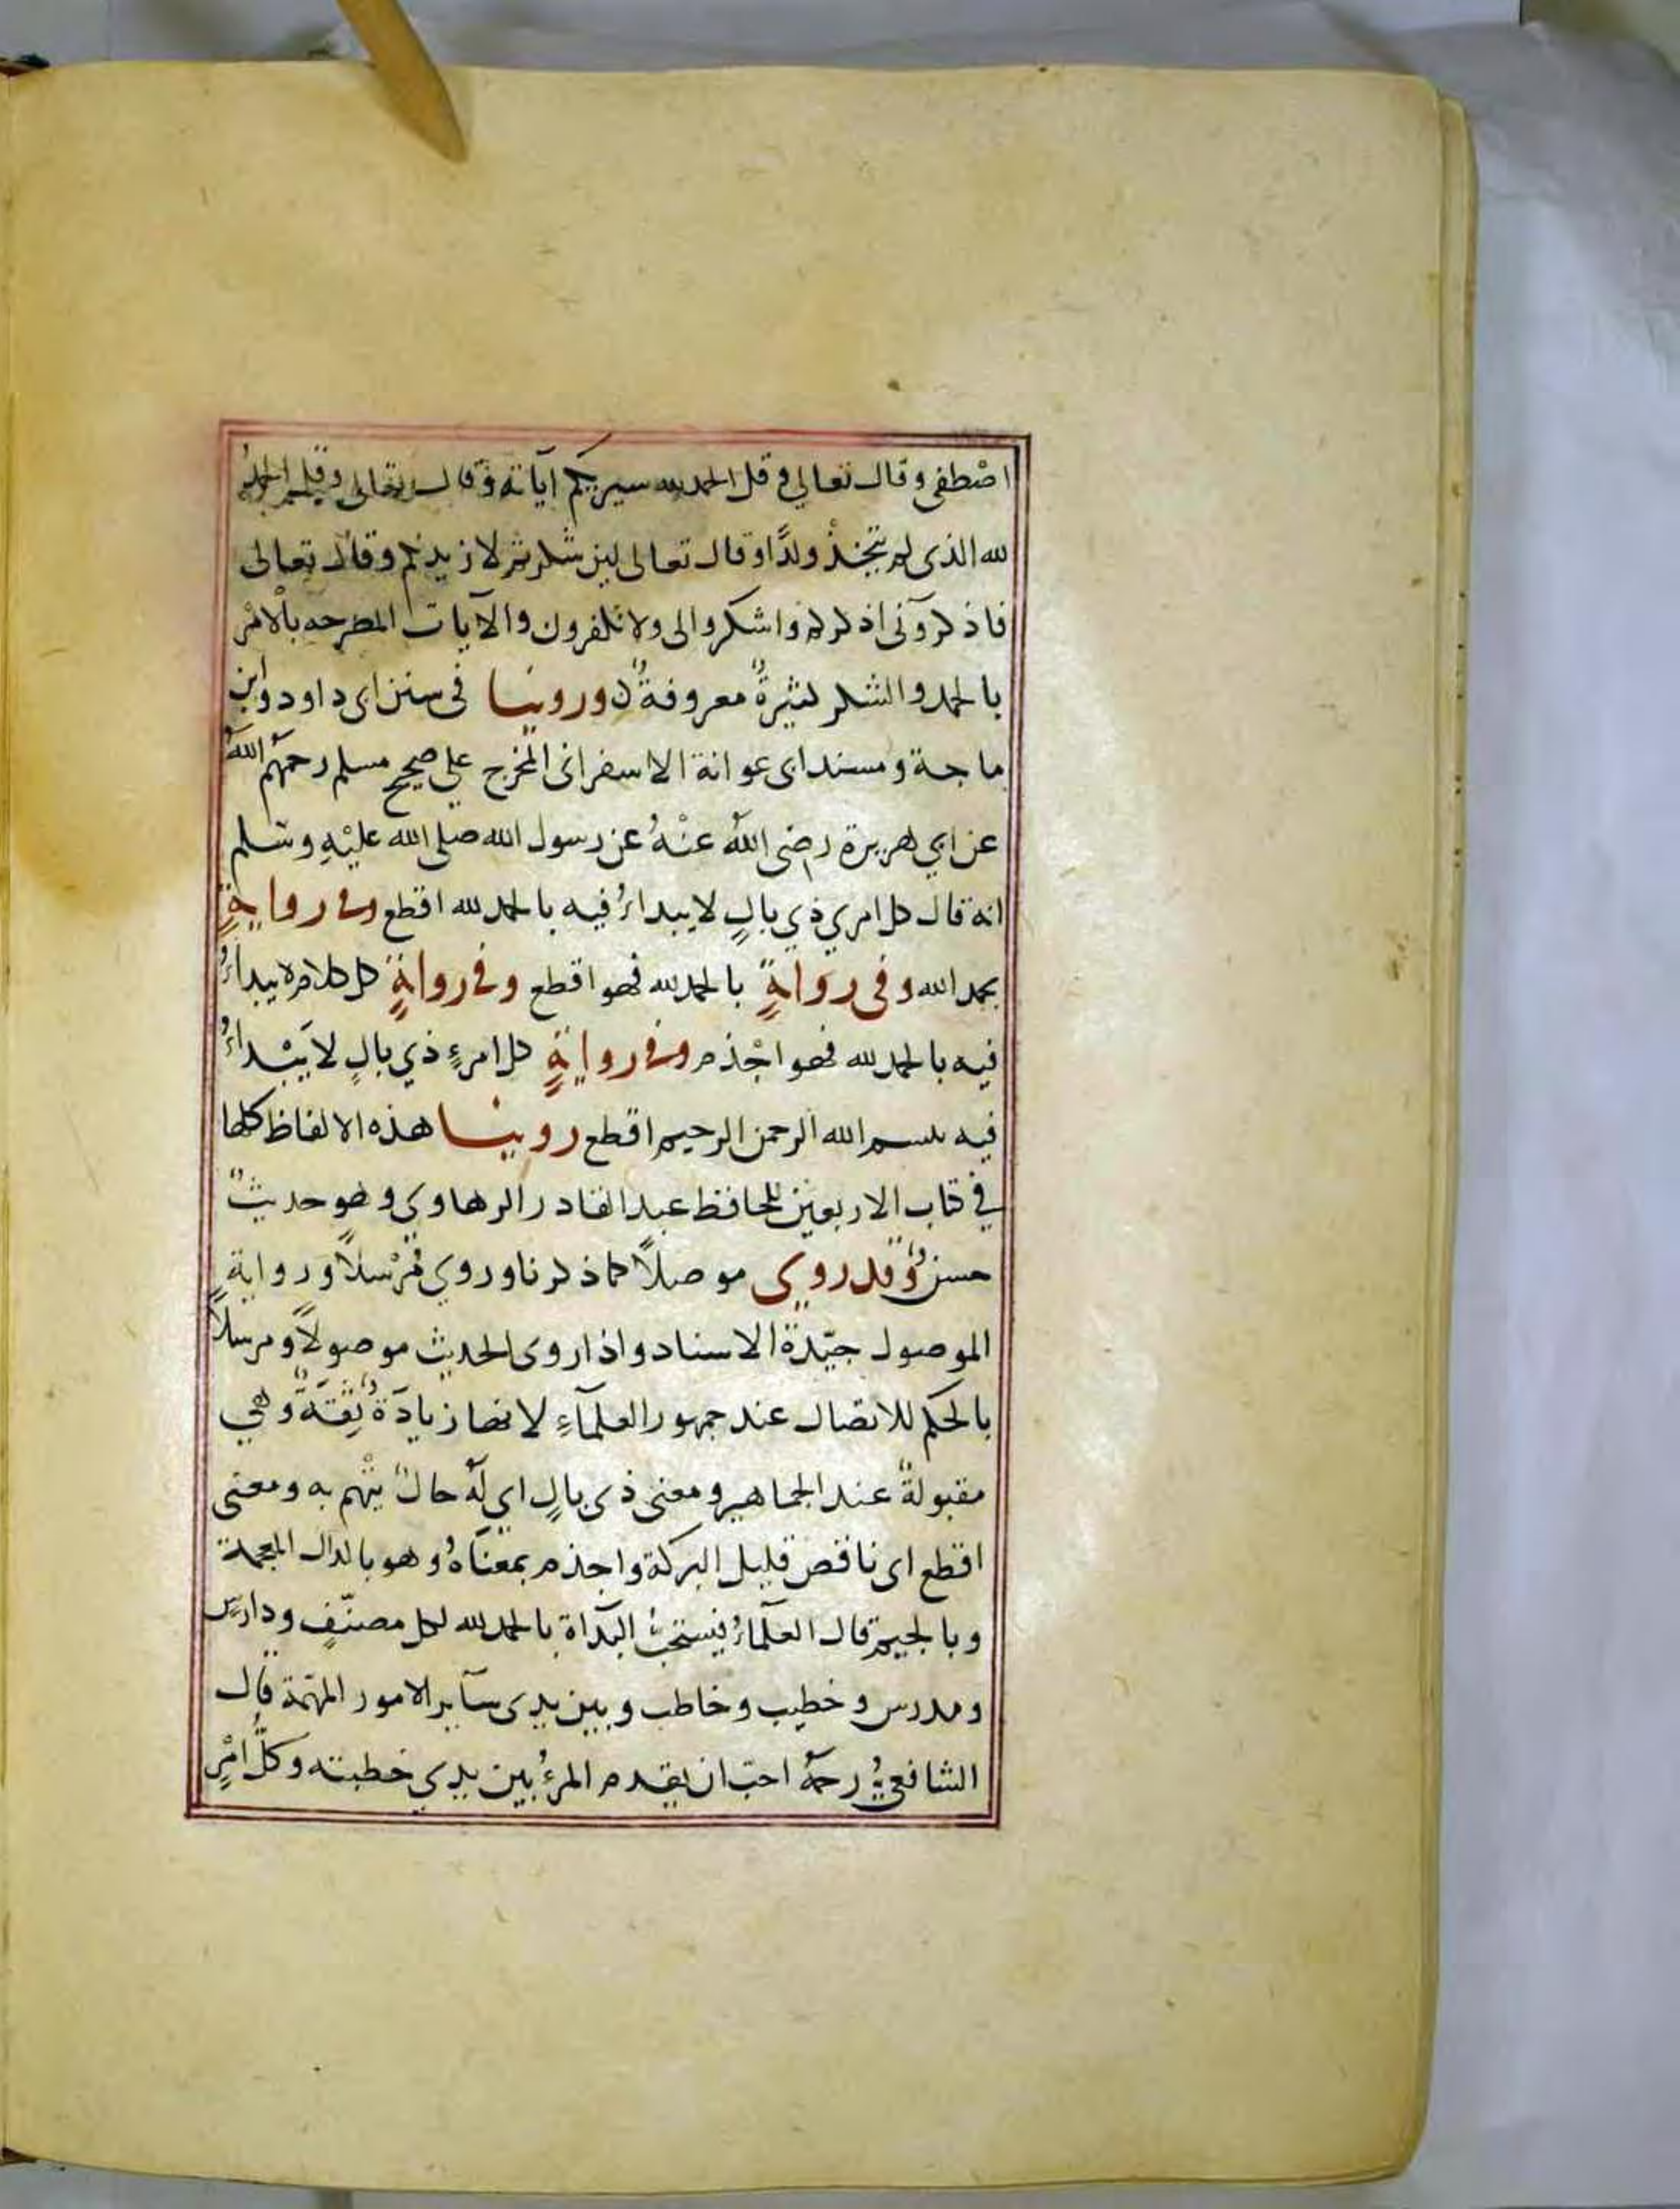 اصْطفى وقال تعالى وقل الحمد لله سيريكم آياته وقال تعالى وقل الحمد
لله الذى لم يتخذْ ولدًا وقال تعالى لين شكرتم لازيدنكم وقال تعالى
فاذكرونى اذكركم واشكروا لى ولا تكفرون والآيات المصرحه بالامْر
بالحمد والشكر كثيرةٌ معروفةٌ ن وروينا فى سنن ابى داود وابن
ماجة ومسند ابى عوانة الاسفرانى المخرج على صحيح مسلم رحمهم اللهُ
عن ابي هريرة رضى اللهُ عنْهُ عن رسول الله صلى الله عليْهِ وسلم
انه قال كل امري ذي بالٍ لا يبداءُ فيه بالحمد لله اقطع وفى روايةٍ
بحمد الله وفى روايةٍ بالحمد لله فهو اقطع وفى روايةٍ كل كلام لا يبداءُ
فيه بالحمد لله فهو اجْذم وفى روايةٍ كل امرءٍ ذي بالٍ لا يَبْداءُ
فيه بسم الله الرحمن الرحيم اقطع روينا هذه الالفاظ كلها
في كتاب الاربعين للحافظ عبد القادر الرهاوي وهو حديثٌ
حسنٌ وقد روي موصلاً كما ذكرنا وروي مُرْسلاً ورواية
الموصول جيّدة الاسناد واذا روى الحديث موصولاً ومرسلاً
بالحكم للاتصال عند جمهور العلمآءِ لانها زيادَةُ ثِقَةٌ وهي
مقبولةٌ عند الجماهير ومعنى ذى بالٍ اي لَهُ حالٌ يُهْتم به ومعنى
اقطع اى ناقص قليل البركة واجذم بمعنَاهُ وهو بالدال المعجمة
وبالجيم قال العلماءُ فيستحبُّ البدآاة بالحمد لله لكل مصنّفٍ ودارسٍ
ومدرس وخطيب وخاطب وبين يدى سآير الامور المهمّة قال
الشافعىُّ رحمهُ احبّ ان يقدم المرءُ بين يدي خطبته وكلُّ امْرٍ